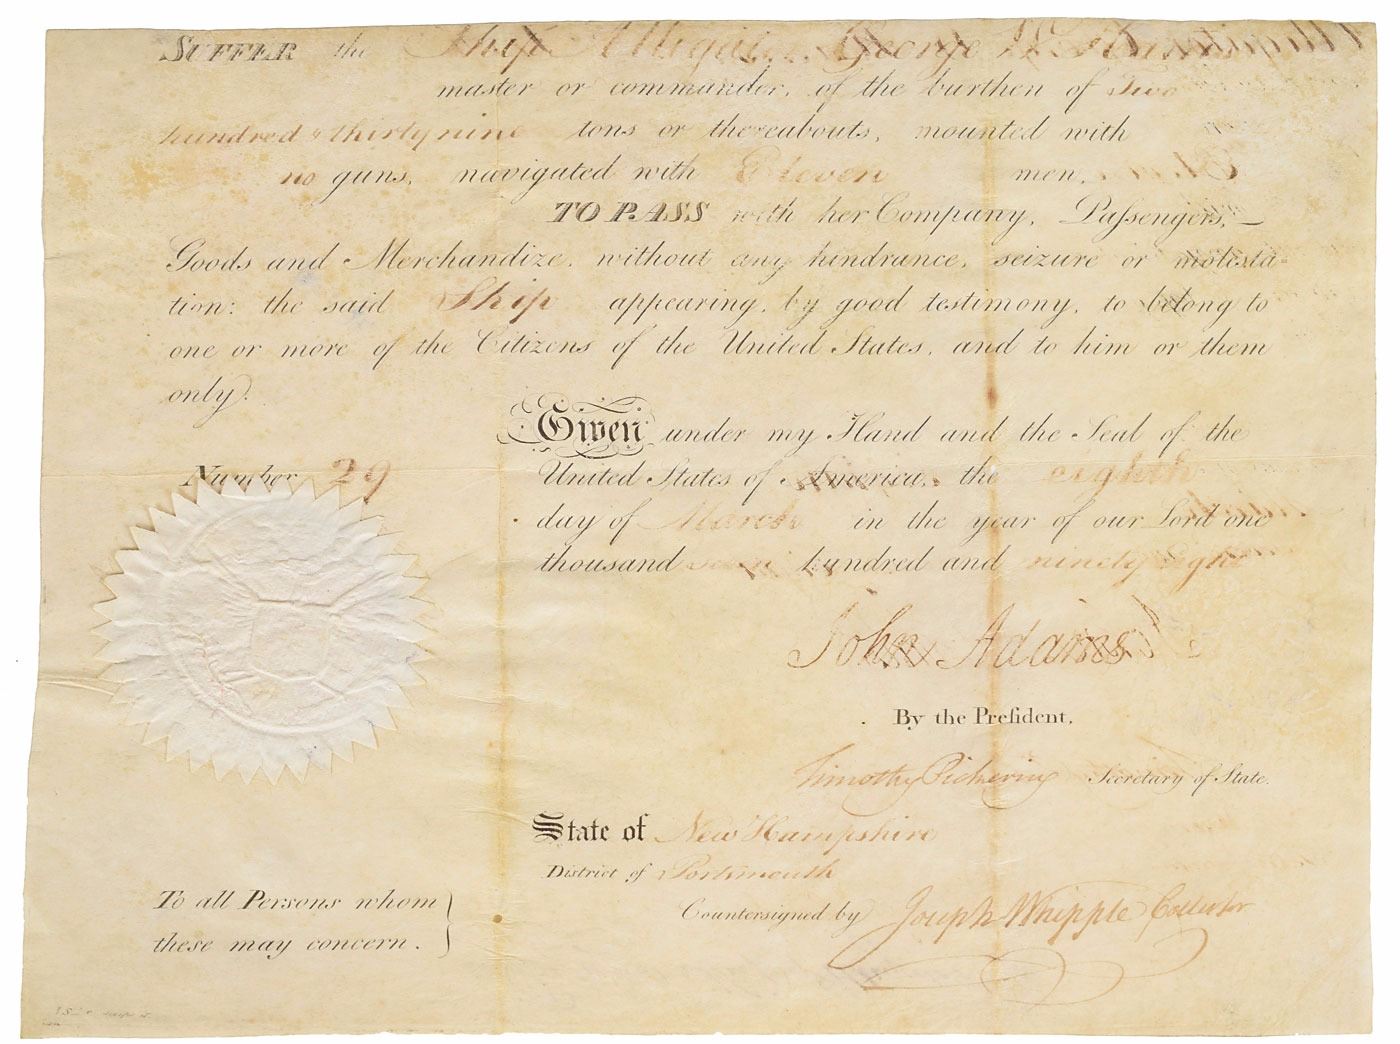 SUFFER the Ship Alligator George W.
master or commander, of the burthen of Two
hundred & thirty nine tons or thereabouts, mounted with
no guns, navigated with Eleven men,
TO PASS with her Company, Passengers,
Goods and Merchandize, without any hindrance, seizure or molesta-
tion: the said Ship appearing, by good testimony, to belong to
one or more of the Citizens of the United States, and to him or them
only.
Given under my Hand and the Seal of the
Number 29
United States of America, the eighth
day of March in the year of our Lord one
thousand seven hundred and ninety eight
John Adams
By the President,
Timothy Pickering Secretary of State.
State of New Hampshire
District of Portsmouth
Countersigned by Joseph Whipple Collector
To all Persons whom
these may concern.